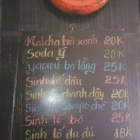 Matcha trà xanh 20K
Soda ý 20K
yaourt ba tầng 25K
Sinh tố dâu 25K
Sinh tố chanh dây 20K
Sinh tố sapo chê 20K
Sinh tố bơ 25K
Sinh tố đu đủ 18K